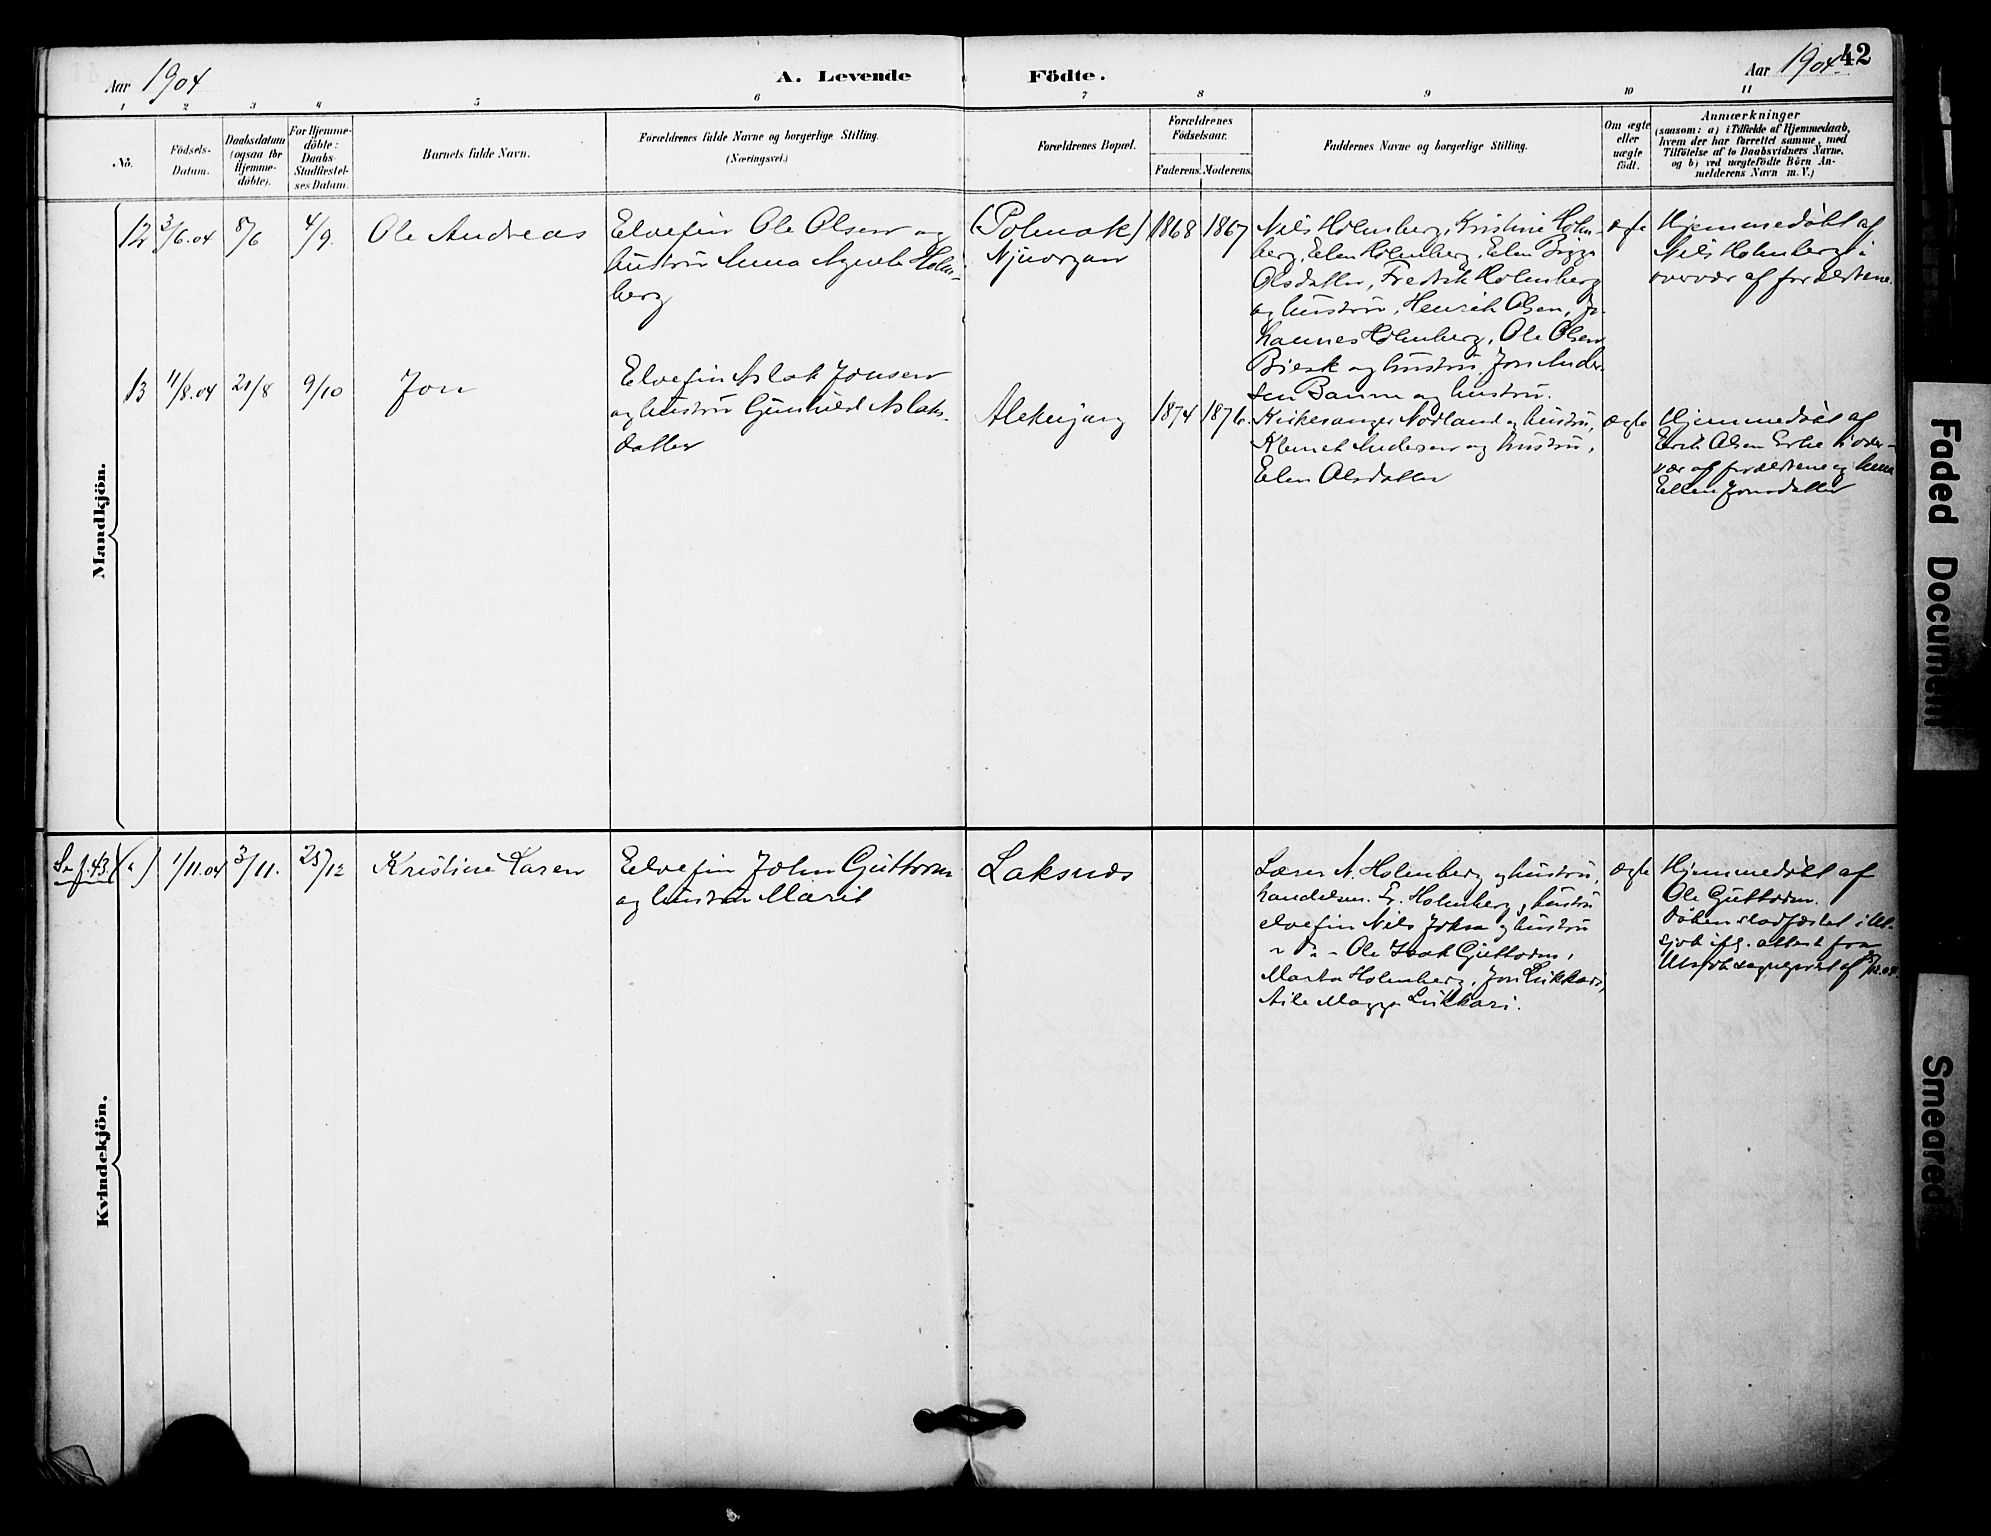 Aar 1904
A. Levende Födte.
Aar 1904
42
1 2 3 4 5 6 7 8 9 10 11
No.
Födsels-
Datum.
Daabsdatum
(ogsaa for
Hjemme-
döbte).
For Hjemme-
döbte:
Daabs-
Stadfæstel-
ses Datum.
Barnets fulde Navn.
Forældrenes fulde Navne og borgerlige Stilling.
(Næringsvei.)
Forældrenes Bopæl.
Forældrenes
Födselsaar.
Faderens. Moderens.
Faddernes Navne og borgerlige Stilling.
Om ægte
eller
uægte
født.
Anmærkninger
(saasom: a) i Tilfælde af Hjemmedaab,
hvem der har forrettet samme, med
Tilföielse af to Daabsvidners Navne,
og b) ved uægtefödte Börn An-
melderens Navn m. V.)
Mandkjön.
12
3/6.04
8/6
4/9.
Ole Andreas
Elvefin Ole Olsen og
hustru Anna Holm-
berg
(Polmak)
Njuorgan
1868
1867
Nils Holmberg, Kristine Holm-
berg, Elen Holmberg, Elen Bigga
Olsdatter, Fredrik Holmberg
og hustru, Henrik Olsen, Jo-
hannes Holmberg, Ole Olsen
og hustru, Jon Ander-
sen og hustru.
ægte
Hjemmedøbt af
Nils Holmberg i
overvær af forældrene.
13
11/8.04
21/8
9/10
Jon
Elvefin Aslak Jonsen
og hustru Gunhild Aslaks-
datter
Alekenjarg
1874
1876.
Kirkesanger Nordland og hustru,
Klemet Andersen og hustru,
Elen Olsdatter
ægte
Hjemmedøbt af
Erik Olsen i over-
vær af forældrene og Anna
Ellen Jonsdatter
Kvindekjön.
Se f. 43.
1/11.04
3/11.
25/12
Kristine Karen
Elvefin John Guttorm
og hustru Marit
Laksnes
Lærer A. Holmberg og hustru,
handelsm. Fr. Holmberg og hustru
elvefin Nils og hustru
Ole Isak Guttorm,
Marta Holmberg, Jon Lukkari,
Aile Magga Lukkari.
ægte
Hjemmedøbt af
Ole Guttorm.
Dåben stadfæstet i Ut-
sjok ifg. attest fra
Utsjok sognepræst af
Faded Document
Smeared